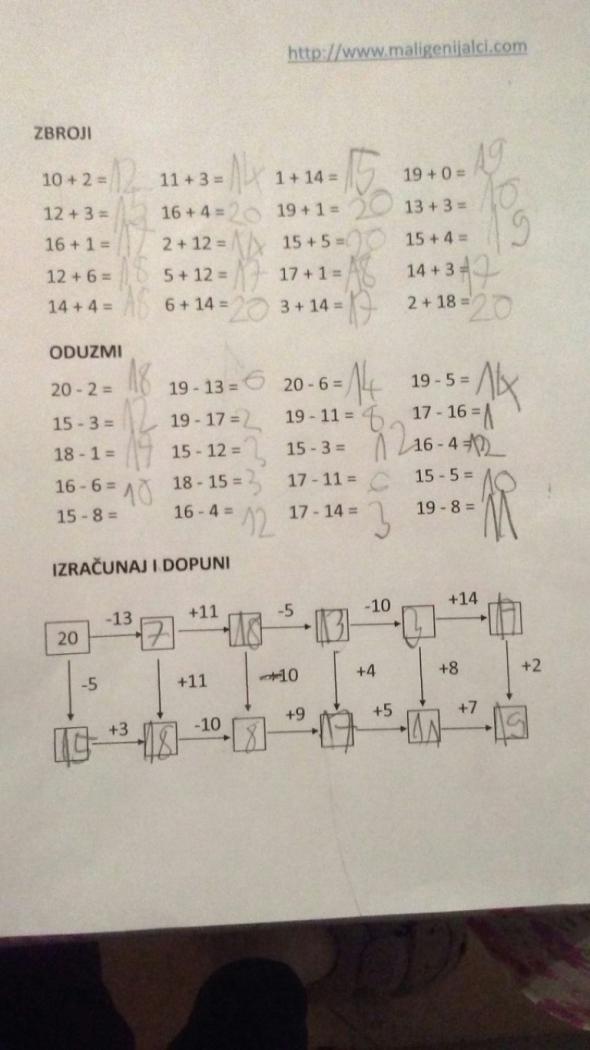 http://www.maligenijalci.com
ZBROJI
10 + 2 = 12 11 + 3 = 14 1 + 14 = 15 19 + 0 = 19
12 + 3 = 15 16 + 4 = 20 19 + 1 = 20 13 + 3 =
16 + 1 = 17 2 + 12 = 14 15 + 5 = 20 15 + 4 = 19
12 + 6 = 18 5 + 12 = 17 17 + 1 = 18 14 + 3 = 17
14 + 4 = 18 6 + 14 = 20 3 + 14 = 17 2 + 18 = 20
ODUZMI
20 - 2 = 18 19 - 13 = 6 20 - 6 = 14 19 - 5 = 14
15 - 3 = 12 19 - 17 = 2 19 - 11 = 8 17 - 16 = 1
18 - 1 = 17 15 - 12 = 3 15 - 3 = 12 16 - 4 = 12
16 - 6 = 10 18 - 15 = 3 17 - 11 = 6 15 - 5 = 10
15 - 8 = 16 - 4 = 12 17 - 14 = 3 19 - 8 = 11
IZRAČUNAJ I DOPUNI
-13 +11 -5 -10 +14
20 7 18 13 3 17
-5 +11 10 +4 +8 +2
+3 -10 +9 +5 +7
15 18 8 17 11 19